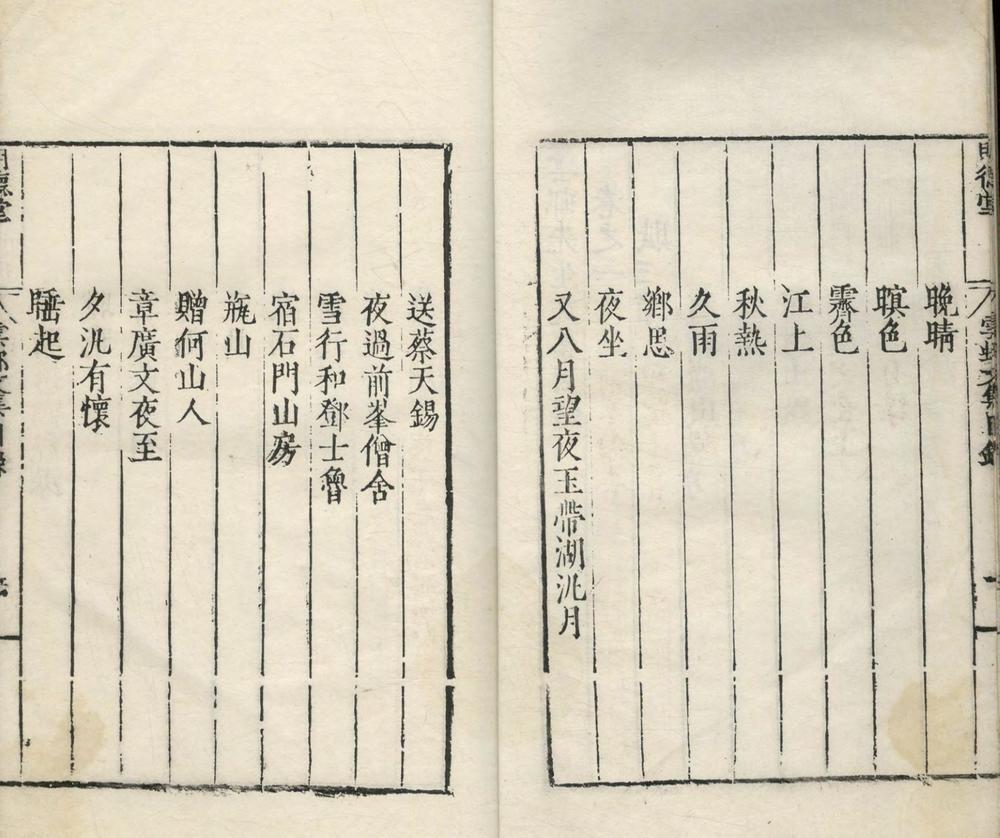 晚晴
暝色
霽色
江上
秋熱
久雨
鄉思
夜坐
又八月望夜玉帶湖汎月
送蔡天錫
夜過前峯僧舍
雪行和鄧士魯
宿石門山房
瓶山
贈何山人
章廣文夜至
夕汎有懷
睡起